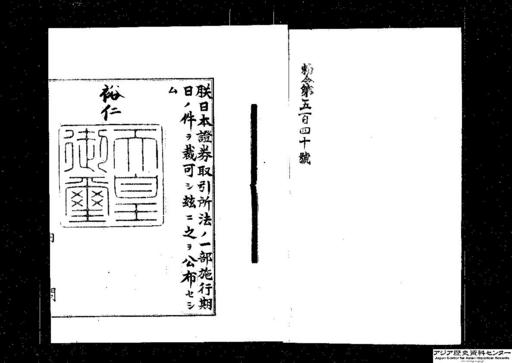 勅令第五百四十號
朕日本證券取引所法ノ一部施行期
日ノ件ヲ裁可シ玆ニ之ヲ公布セシ
ム
裕仁
天皇
御璽
内閣
アジア歴史資料センター
Japan Center for Asian Historical Records